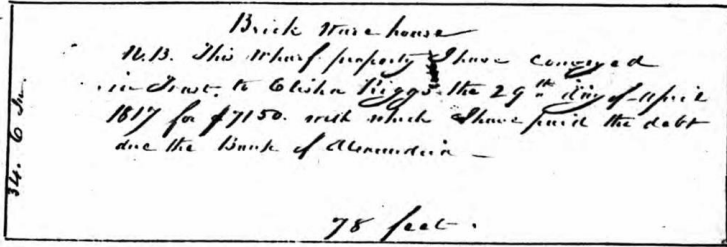 Brick Ware house
N.B. This Wharf property I have conveyed
in Trust, to Elisha Riggs the 29th day of April
1817 for $7150. with which I have paid the debt
due the Bank of Alexandria —
34. 6 In.
78 feet.